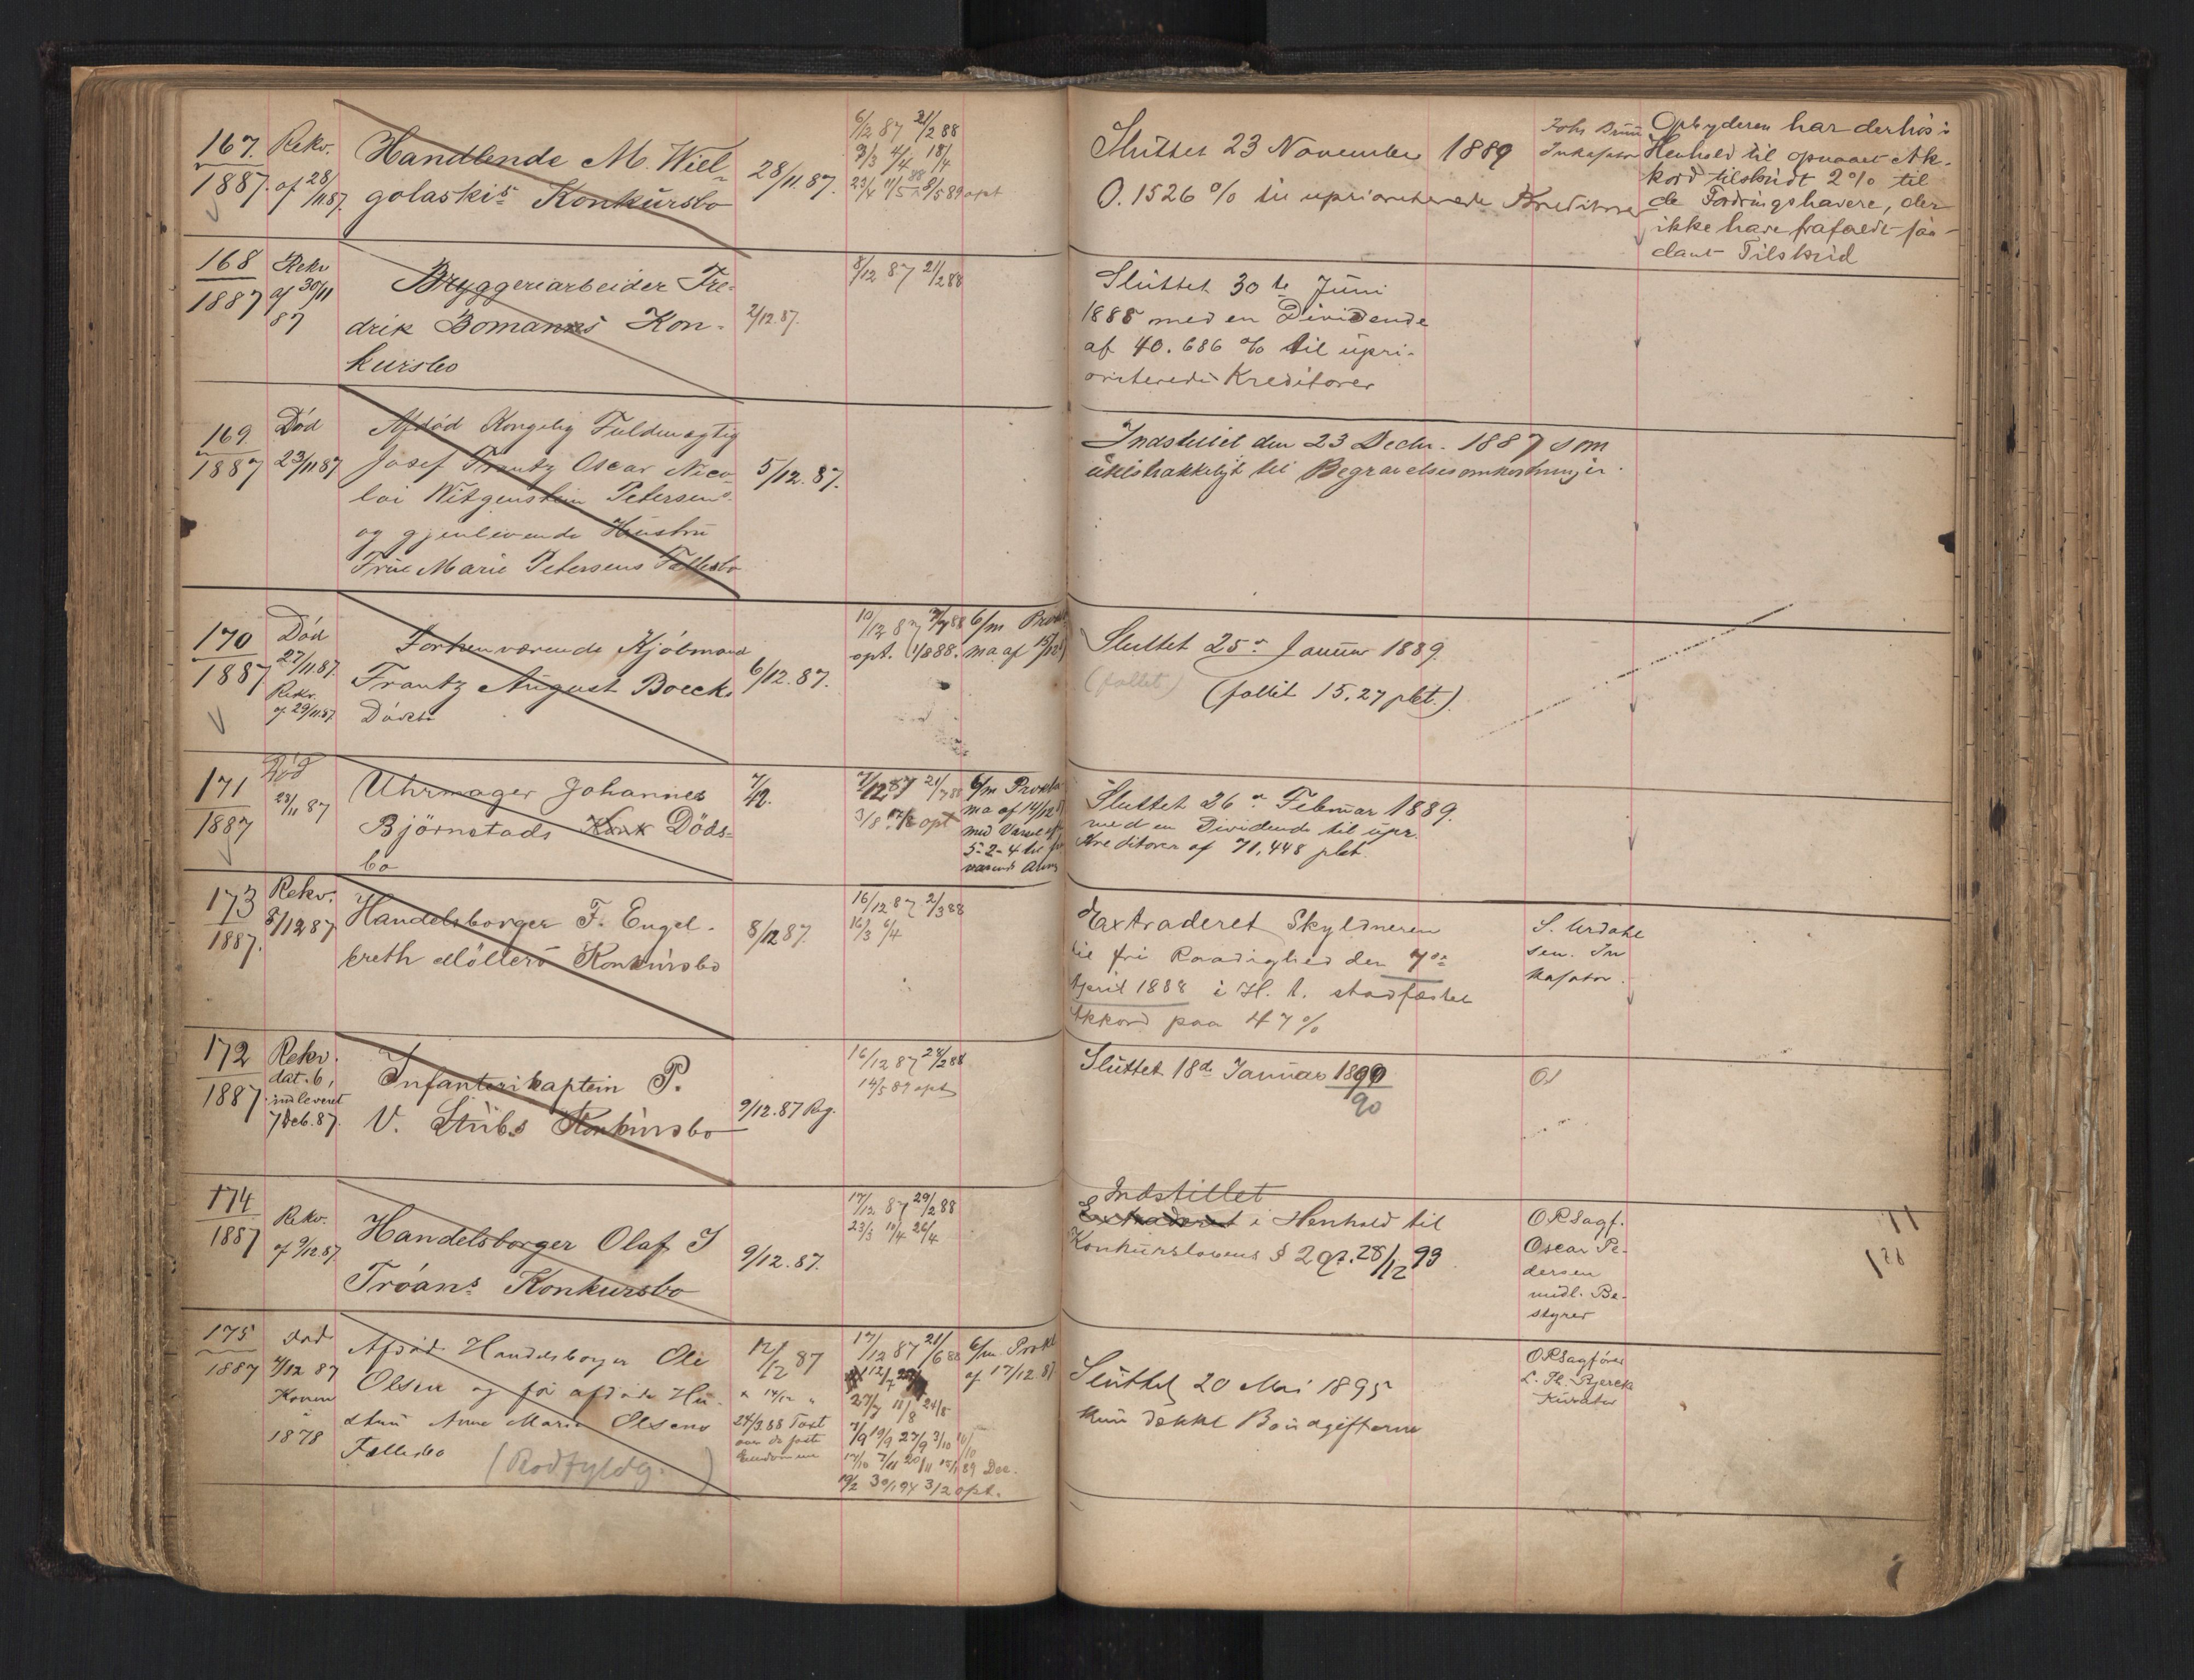 167. Rekv. Handlende M. Wiel-
1887. af 28/11 87. golaskis Konkursbo 28/11. 87.
6/12 87 21/2 88
9/3 4/4 18/4
23/4 11/5 88 8/5 89 opt
Sluttet 23 November 1889
0.1526 % til uprioriterede Kreditorer
Johs Bruun
Inkassator
Opbyderen har derhos i
Henhold til opnaaet Ak-
kord tilskudt 2% til
de Fordringshavere, der
ikke have frafaldt saa-
dant Tilskud
168 Rekv Bryggeriarbeider Fre-
1887 af 30/11 drik Bomanns Kon- 2/12. 87.
87 kursbo
8/12 87 21/2 88
Sluttet 30te Juni
1888 med en Dividende
af 40.686 % til upri-
oriterede Kreditorer
169 Død Afdød Kongelig Fuldmægtig
1887 23/11 87 Josef Frantz Oscar Nico- 5/12. 87.
lai Witgenstein Petersens
og gjenlevende Hustru
Frue Marie Petersens Fællesbo
Indstillet den 23 Decbr. 1887 som
utilstrækkeligt til Begravelsesomkostninger.
170 Død Forhenværende Kjøbmand
1887 27/11. 87. Frantz August Boecks 6/12. 87.
Rekv.
af 29/11. 87. Dødsbo
opt.
6/m
ma af 15/12
Sluttet 25. Januar 1889.
(fallit)
(fallit 15.27 pct.)
171 Død Uhrmager Johannes 7/12.
1887 23/11 87 Bjørnstads Konk Døds-
bo
7/12 87 21/7 88
opt
6/m Prokla
ma af 14/12 8
med Varsel
5-2-4
Sluttet 26. Februar 1889.
med en Dividende til upr.
Kreditorer af 71,448 pct.
173 Rekv. Handelsborger F. Engel-
1887. 8/12 87 breth Møllers Konkursbo 8/12 87.
16/12 87 2/3 88
16/3 6/4
Extraderet Skyldneren
til fri Raadighed den 7de
April 1888 i H. t. stadfæstet
Akkord paa 47%
S. Urdahl
sen. In
kassator.
172 Rekv. Infanterikaptein P.
1887 dat. 6, V. Stübs Konkursbo 9/12. 87 Pag.
indleveret
7 Deb. 87.
16/12 87 28/2 88
14/5 89 opt
Sluttet 18de Januar 1890
90
174 Rekv. Handelsborger Olaf I
1887 af 9/12. 87. Tröans Konkursbo 9/12. 87.
17/12. 87 29/2 88
23/3 10/4 26/4
Indstillet
Extraderet i Henhold til
Konkurslovens § 2 28/12 93
ORSagf.
Oscar Pe-
dersen
midl. Be-
styrer
175 Død Afdød Handelsborger Ole 12/12 87
1887 4/12 87 Olsen og før afdøde Hu-
Konen stru Anne Marie Olsens
i
1878 Fællesbo (Rodfyldg.)
24/3. 88 Taxt
over de faste
Eiendomme
17/12 87 21/6 88
27/7 11/8 24/8
7/9 19/9 27/9 3/10 10/10
17/10 7/11 20/11 15/1 89 Dec.
19/2 30/1 94 3/12 opt.
6/m. Prokl
af 17/12. 87
Sluttet 20 Mai 1895
kun dækket Boudgifterne
ORSagfører
L. Th. Bjerck
Kurator